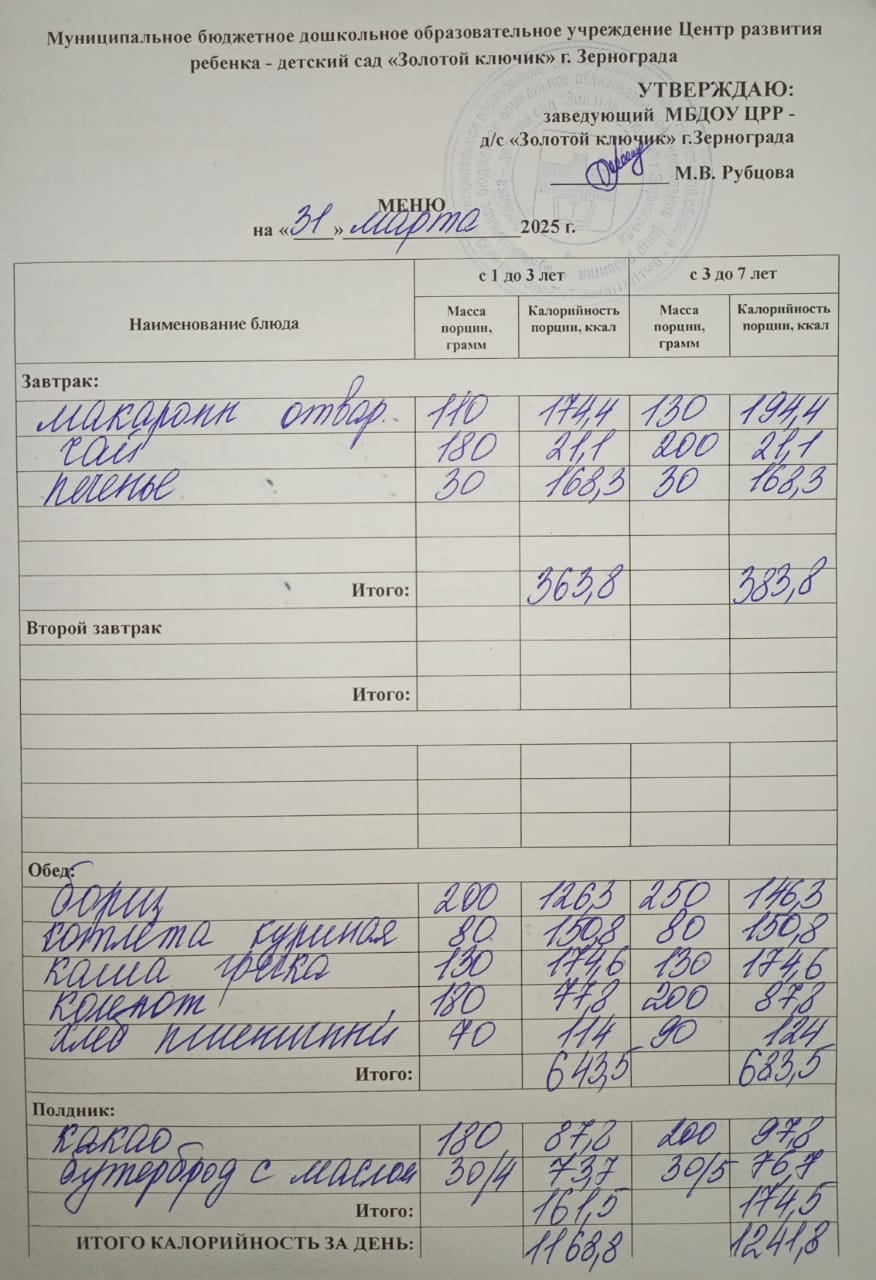 Муниципальное бюджетное дошкольное образовательное учреждение Центр развития
ребенка - детский сад «Золотой ключик» г. Зернограда
УТВЕРЖДАЮ:
заведующий МБДОУ ЦРР -
д/с «Золотой ключик» г.Зернограда
М.В. Рубцова
МЕНЮ
на «31» марта 2025 г.
Наименование блюда с 1 до 3 лет с 3 до 7 лет
Масса порции, грамм Калорийность порции, ккал Масса порции, грамм Калорийность порции, ккал
Завтрак:
макарони отвар. 110 174,4 130 194,4
чай 180 21,1 200 21,1
печенье 30 168,3 30 168,3
Итого: 363,8 383,8
Второй завтрак
Итого:
Обед:
борщ 200 126,3 250 146,3
котлета куриная 80 150,8 80 150,8
каша греча 130 174,6 130 174,6
компот 180 77,8 200 87,8
хлеб пшеничный 70 114 90 124
Итого: 643,5 683,5
Полдник:
какао 180 87,8 200 97,8
бутерброд с маслом 30/4 73,7 30/5 76,7
Итого: 161,5 174,5
ИТОГО КАЛОРИЙНОСТЬ ЗА ДЕНЬ: 1168,8 1241,8